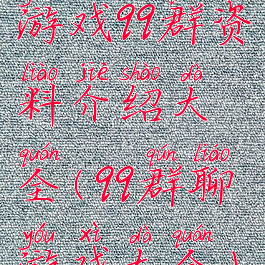 游戏99群资
liào jiè shào dà
料介绍大
quán qún liáo
全(99群聊
yóu xì dà quán
游戏大全)